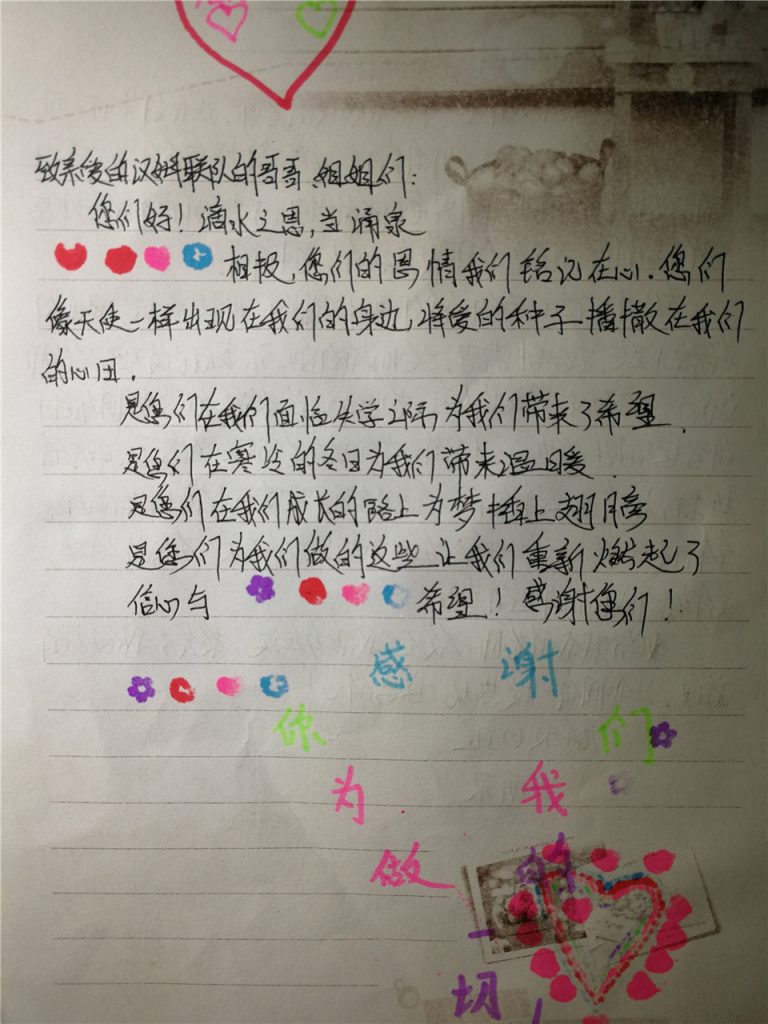 致亲爱的汉娴联队的哥哥、姐姐们:
您们好!滴水之恩,当涌泉
相报,您们的恩情我们铭记在心.您们
像天使一样出现在我们的身边,将爱的种子播撒在我们
的心田.
是您们在我们面临失学之际为我们带来了希望.
是您们在寒冷的冬日为我们带来温暖.
是您们在我们成长的路上为梦插上翅膀
是您们为我们做的这些让我们重新燃起了
信心与 希望!感谢您们!
感谢
你们
为我
做的
一切!